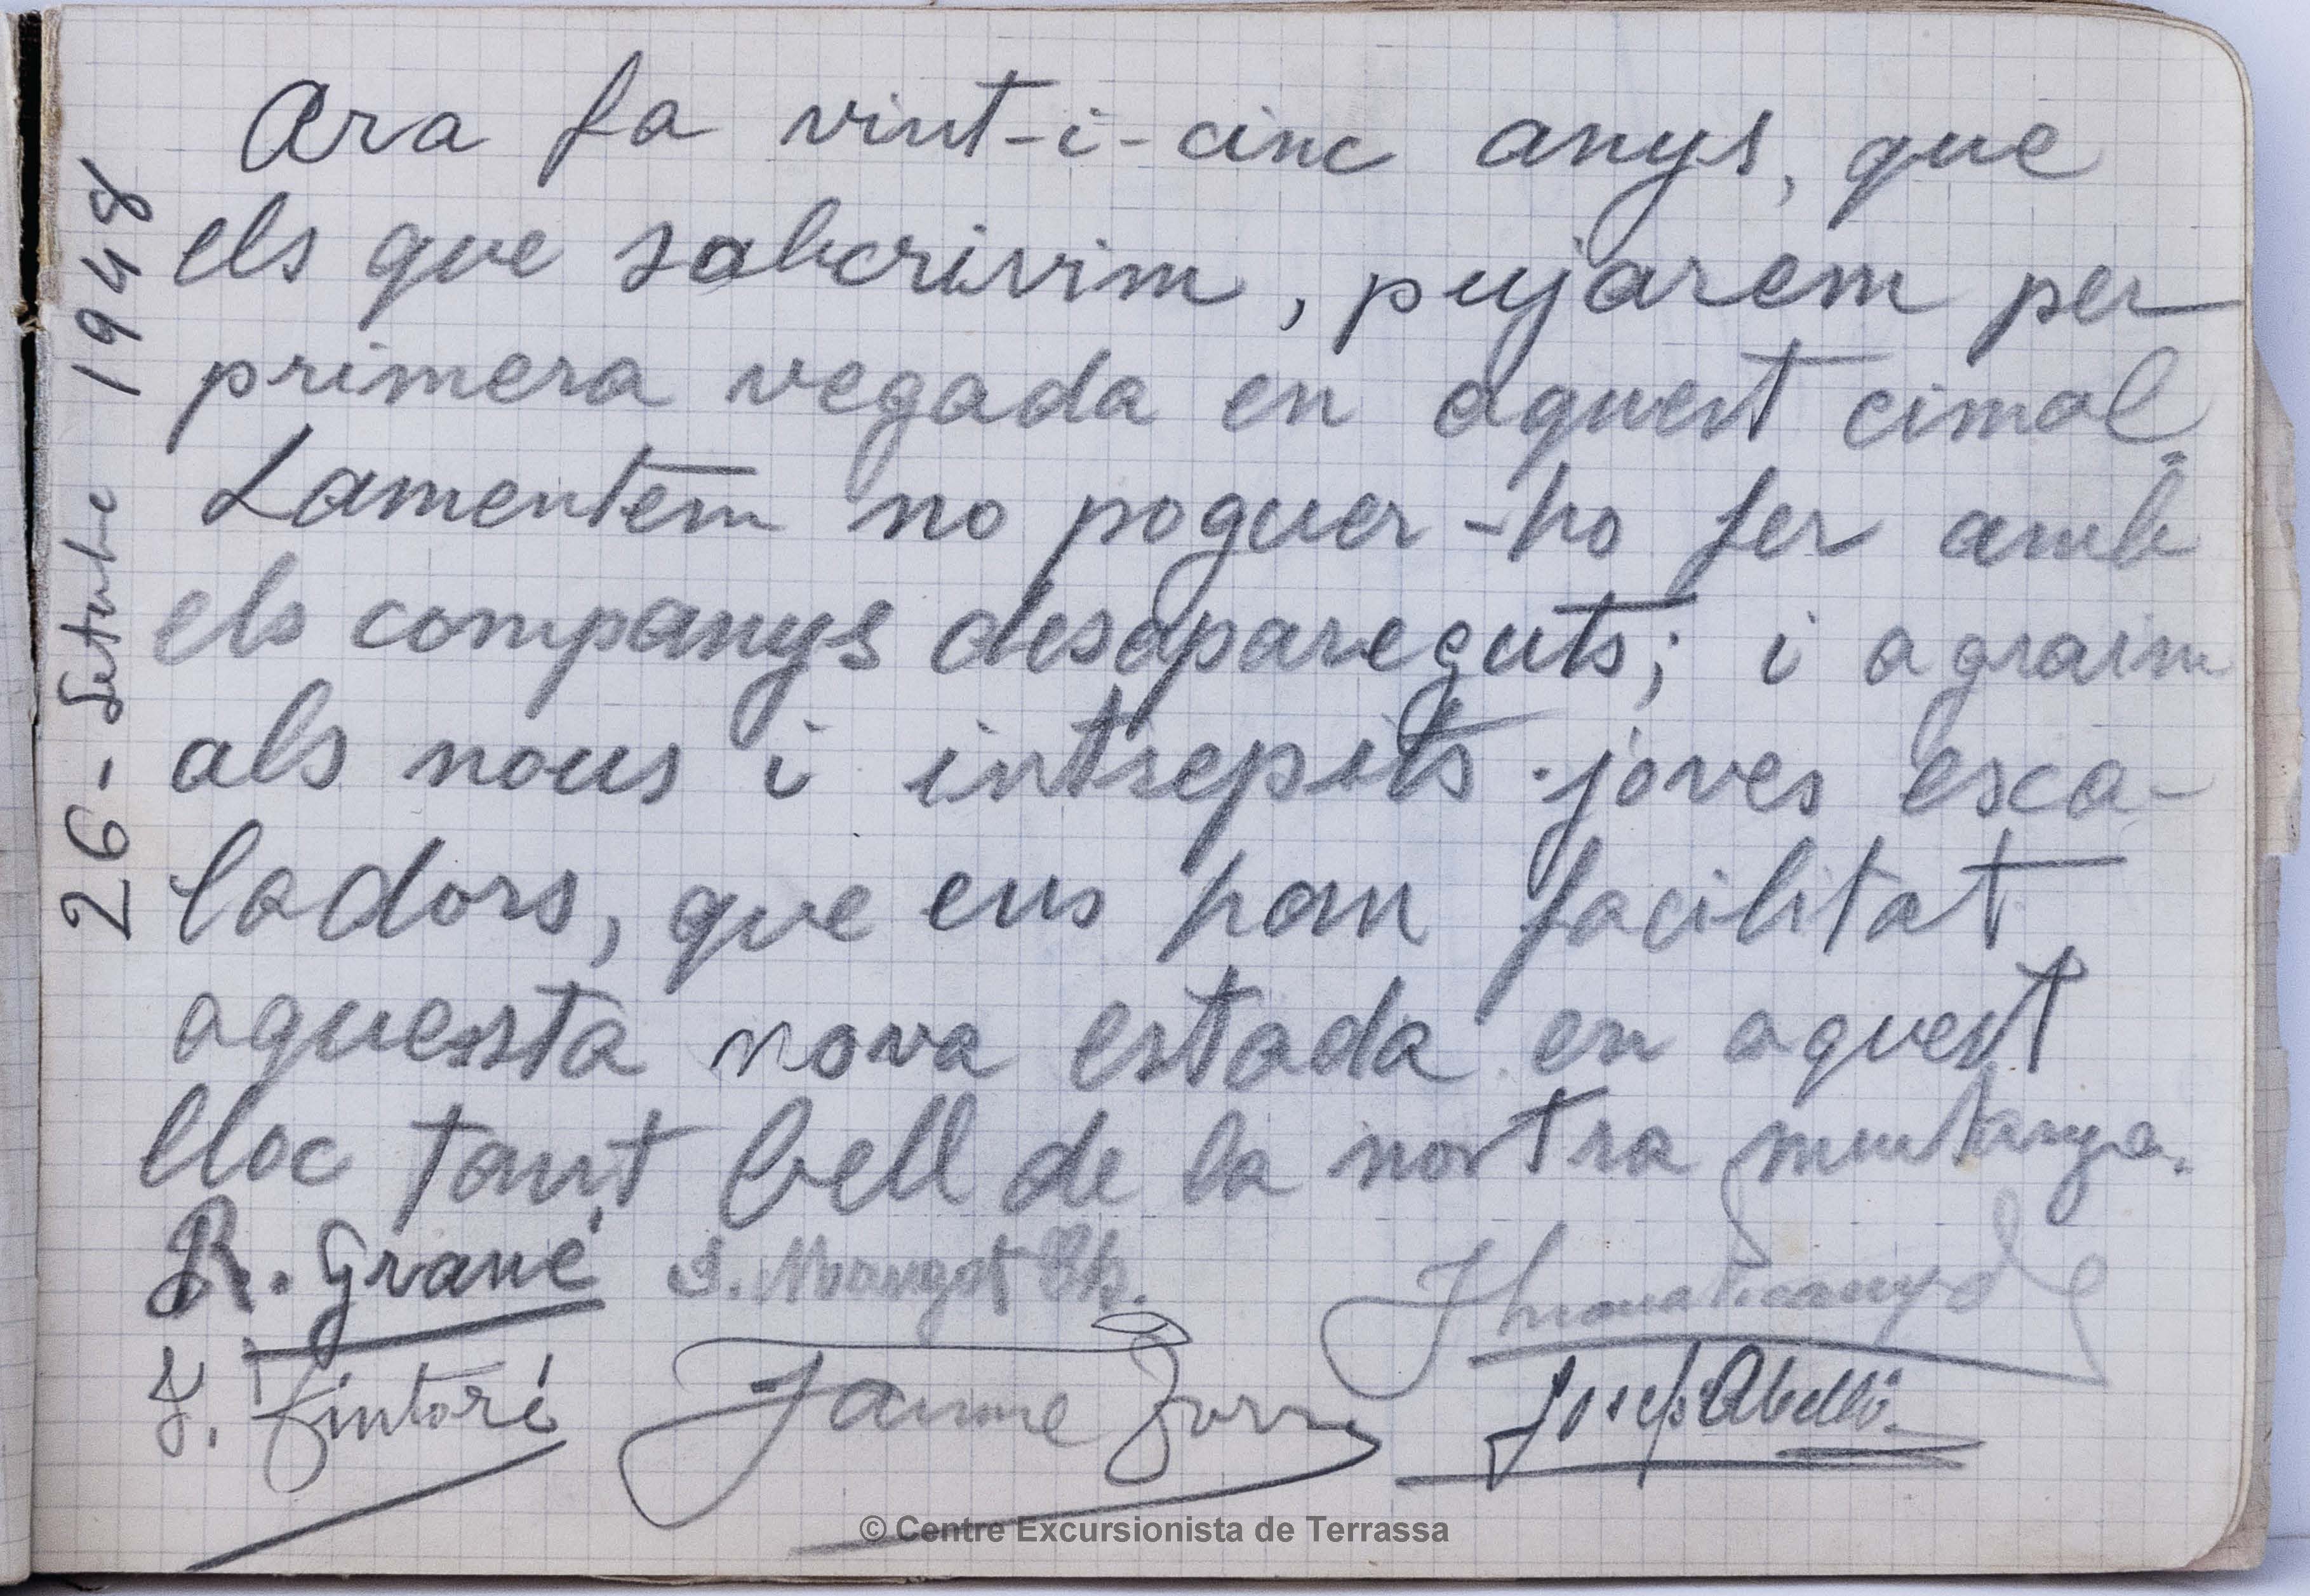 26 - Setbre 1948
Ara fa vint-i-cinc anys, que
els que sobcrivim, pujarem per
primera vegada en aquest cimal.
Lamentem no poguer-ho fer amb
els companys desapareguts; i agraim
als nous i intrepits joves esca-
ladors, que ens han facilitat
aquesta nova estada en aquest
lloc tant bell de la nostra muntanya.
R. Grané
J. Tintoré Jaume Josep Abelló
© Centre Excursionista de Terrassa